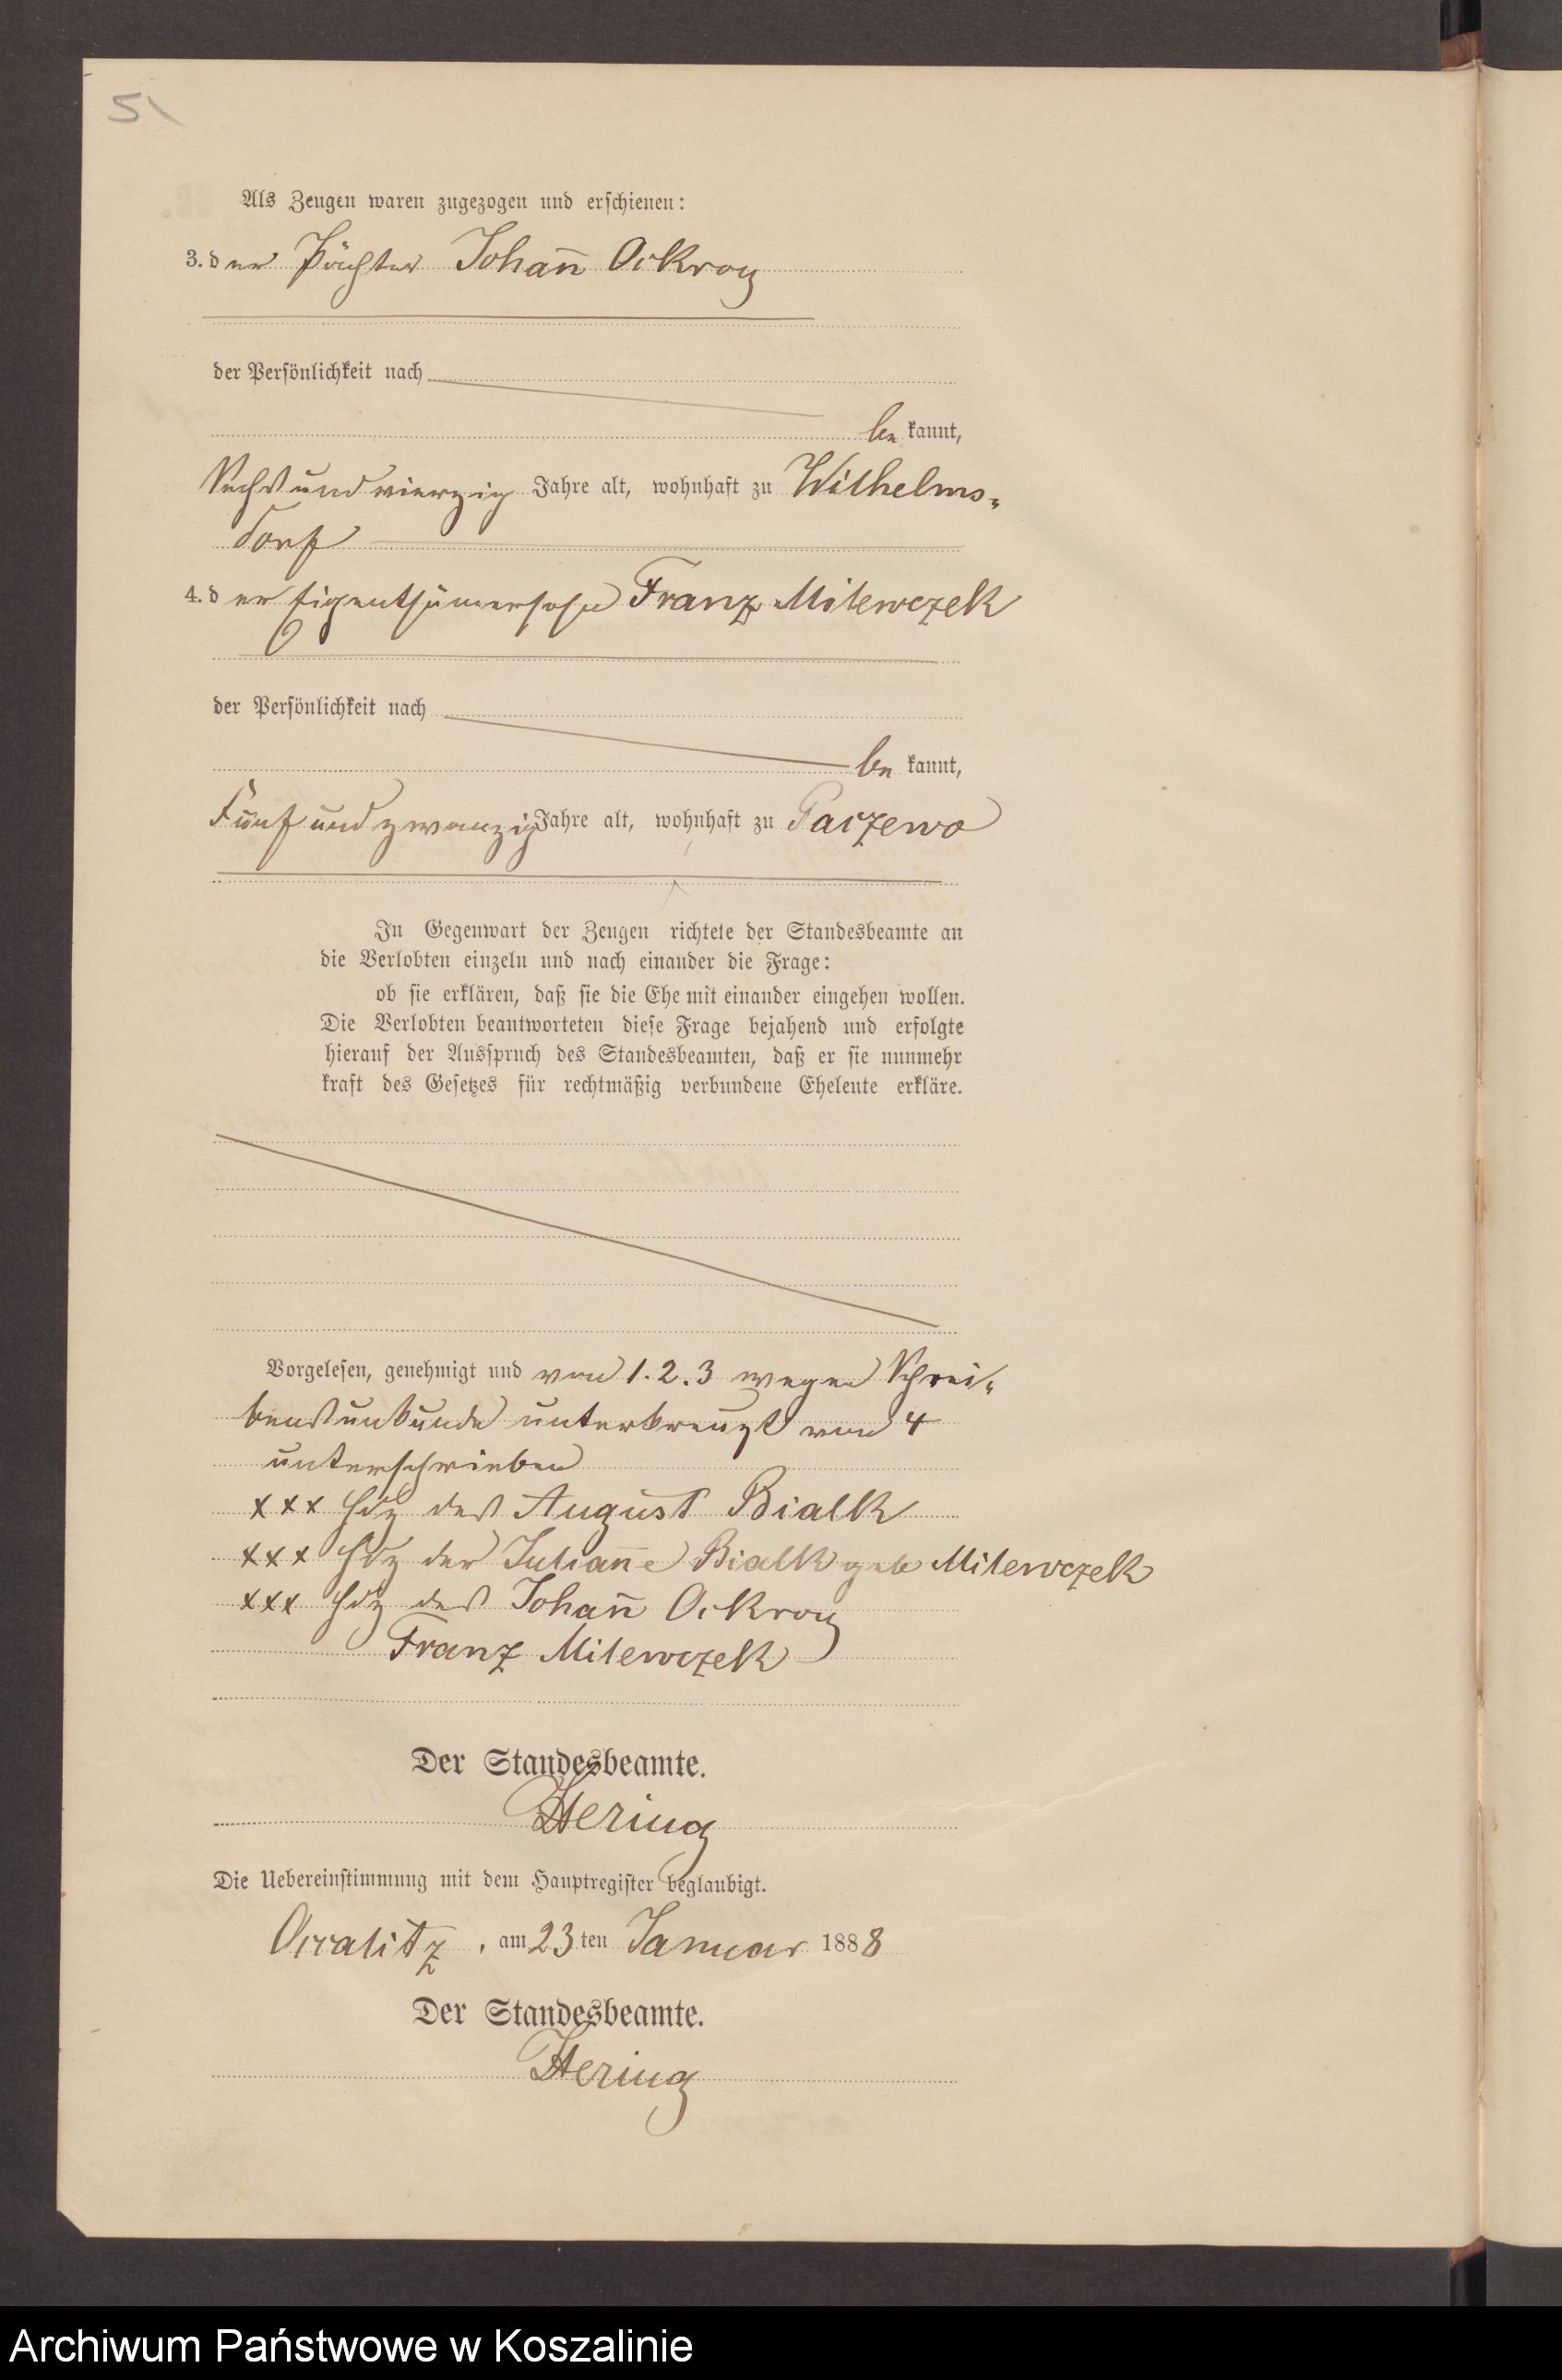 51
Als Zeugen waren zugezogen und erschienen:
3. der Pächter Johan̄ Ockroy
der Persönlichkeit nach
be kannt,
Sechsundvierzig Jahre alt, wohnhaft zu Wilhelms-
dorf
4. der Eigenthümersohn Franz Milewczek
der Persönlichkeit nach
be kannt,
Fünfundzwanzig Jahre alt, wohnhaft zu Paczewo
In Gegenwart der Zeugen richtete der Standesbeamte an
die Verlobten einzeln und nach einander die Frage:
ob sie erklären, daß sie die Ehe mit einander eingehen wollen.
Die Verlobten beantworteten diese Frage bejahend und erfolgte
hierauf der Ausspruch des Standesbeamten, daß er sie nunmehr
kraft des Gesetzes für rechtmäßig verbundene Eheleute erkläre.
Vorgelesen, genehmigt und von 1. 2. 3 wegen Schrei-
bensunkunde unterkreuzt von 4
unterschrieben
xxx Hdz des August Bialk
xxx Hdz der Julian̄e Bialk geb Milewczek
xxx Hdz des Johan̄ Ockroy
Franz Milewczek
Der Standesbeamte.
Hering
Die Uebereinstimmung mit dem Hauptregister beglaubigt.
Occalitz, am 23ten Januar 1888
Der Standesbeamte.
Hering
Archiwum Państwowe w Koszalinie